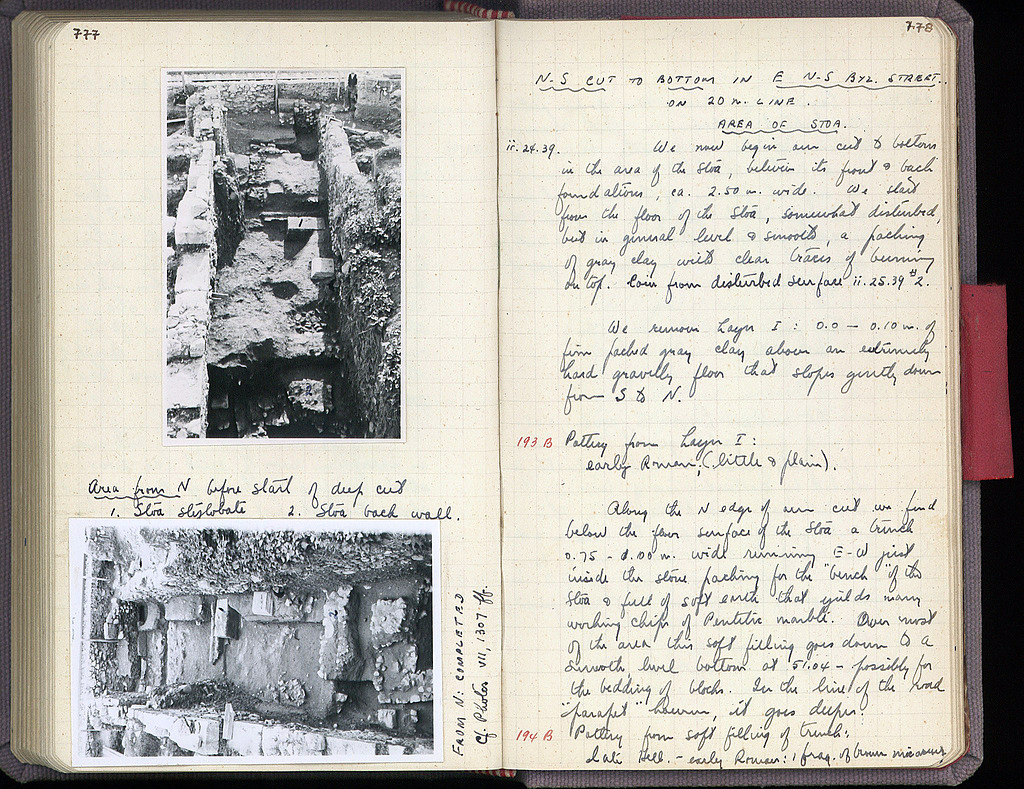 777
Area from N before start of deep cut
1. Stoa stylobate 2. Stoa back wall.
FROM N: COMPLETED
Cf. Photos VII, 1307 ff.
778
N-S CUT TO BOTTOM IN E N-S BYZ. STREET.
ON 20 m. LINE.
AREA OF STOA.
ii.24.39. We now begin our cut to bottom
in the area of the Stoa, between its front & back
foundations, ca. 2.50 m. wide. We start
from the floor of the Stoa, somewhat disturbed,
but in general level & smooth, a packing
of gray clay with clear traces of burning
on top. Coin from disturbed surface ii.25.39 #2.
We remove Layer I: 0.0 – 0.10 m. of
firm packed gray clay above an extremely
hard gravelly floor that slopes gently down
from S to N.
193 B Pottery from Layer I:
early Roman, (little & plain).
Along the N edge of our cut we find
below the floor surface of the Stoa a trench
0.75 - 1.00 m. wide running E-W just
inside the stone packing for the "bench" of the
Stoa & full of soft earth that yields many
working chips of Pentelic marble. Over most
of the area this soft filling goes down to a
smooth level bottom at 51.04 – possibly for
the bedding of blocks. In the line of the road
"parapet" however, it goes deeper.
194 B Pottery from soft filling of trench:
Late Hell. - early Roman: 1 frag. of brown